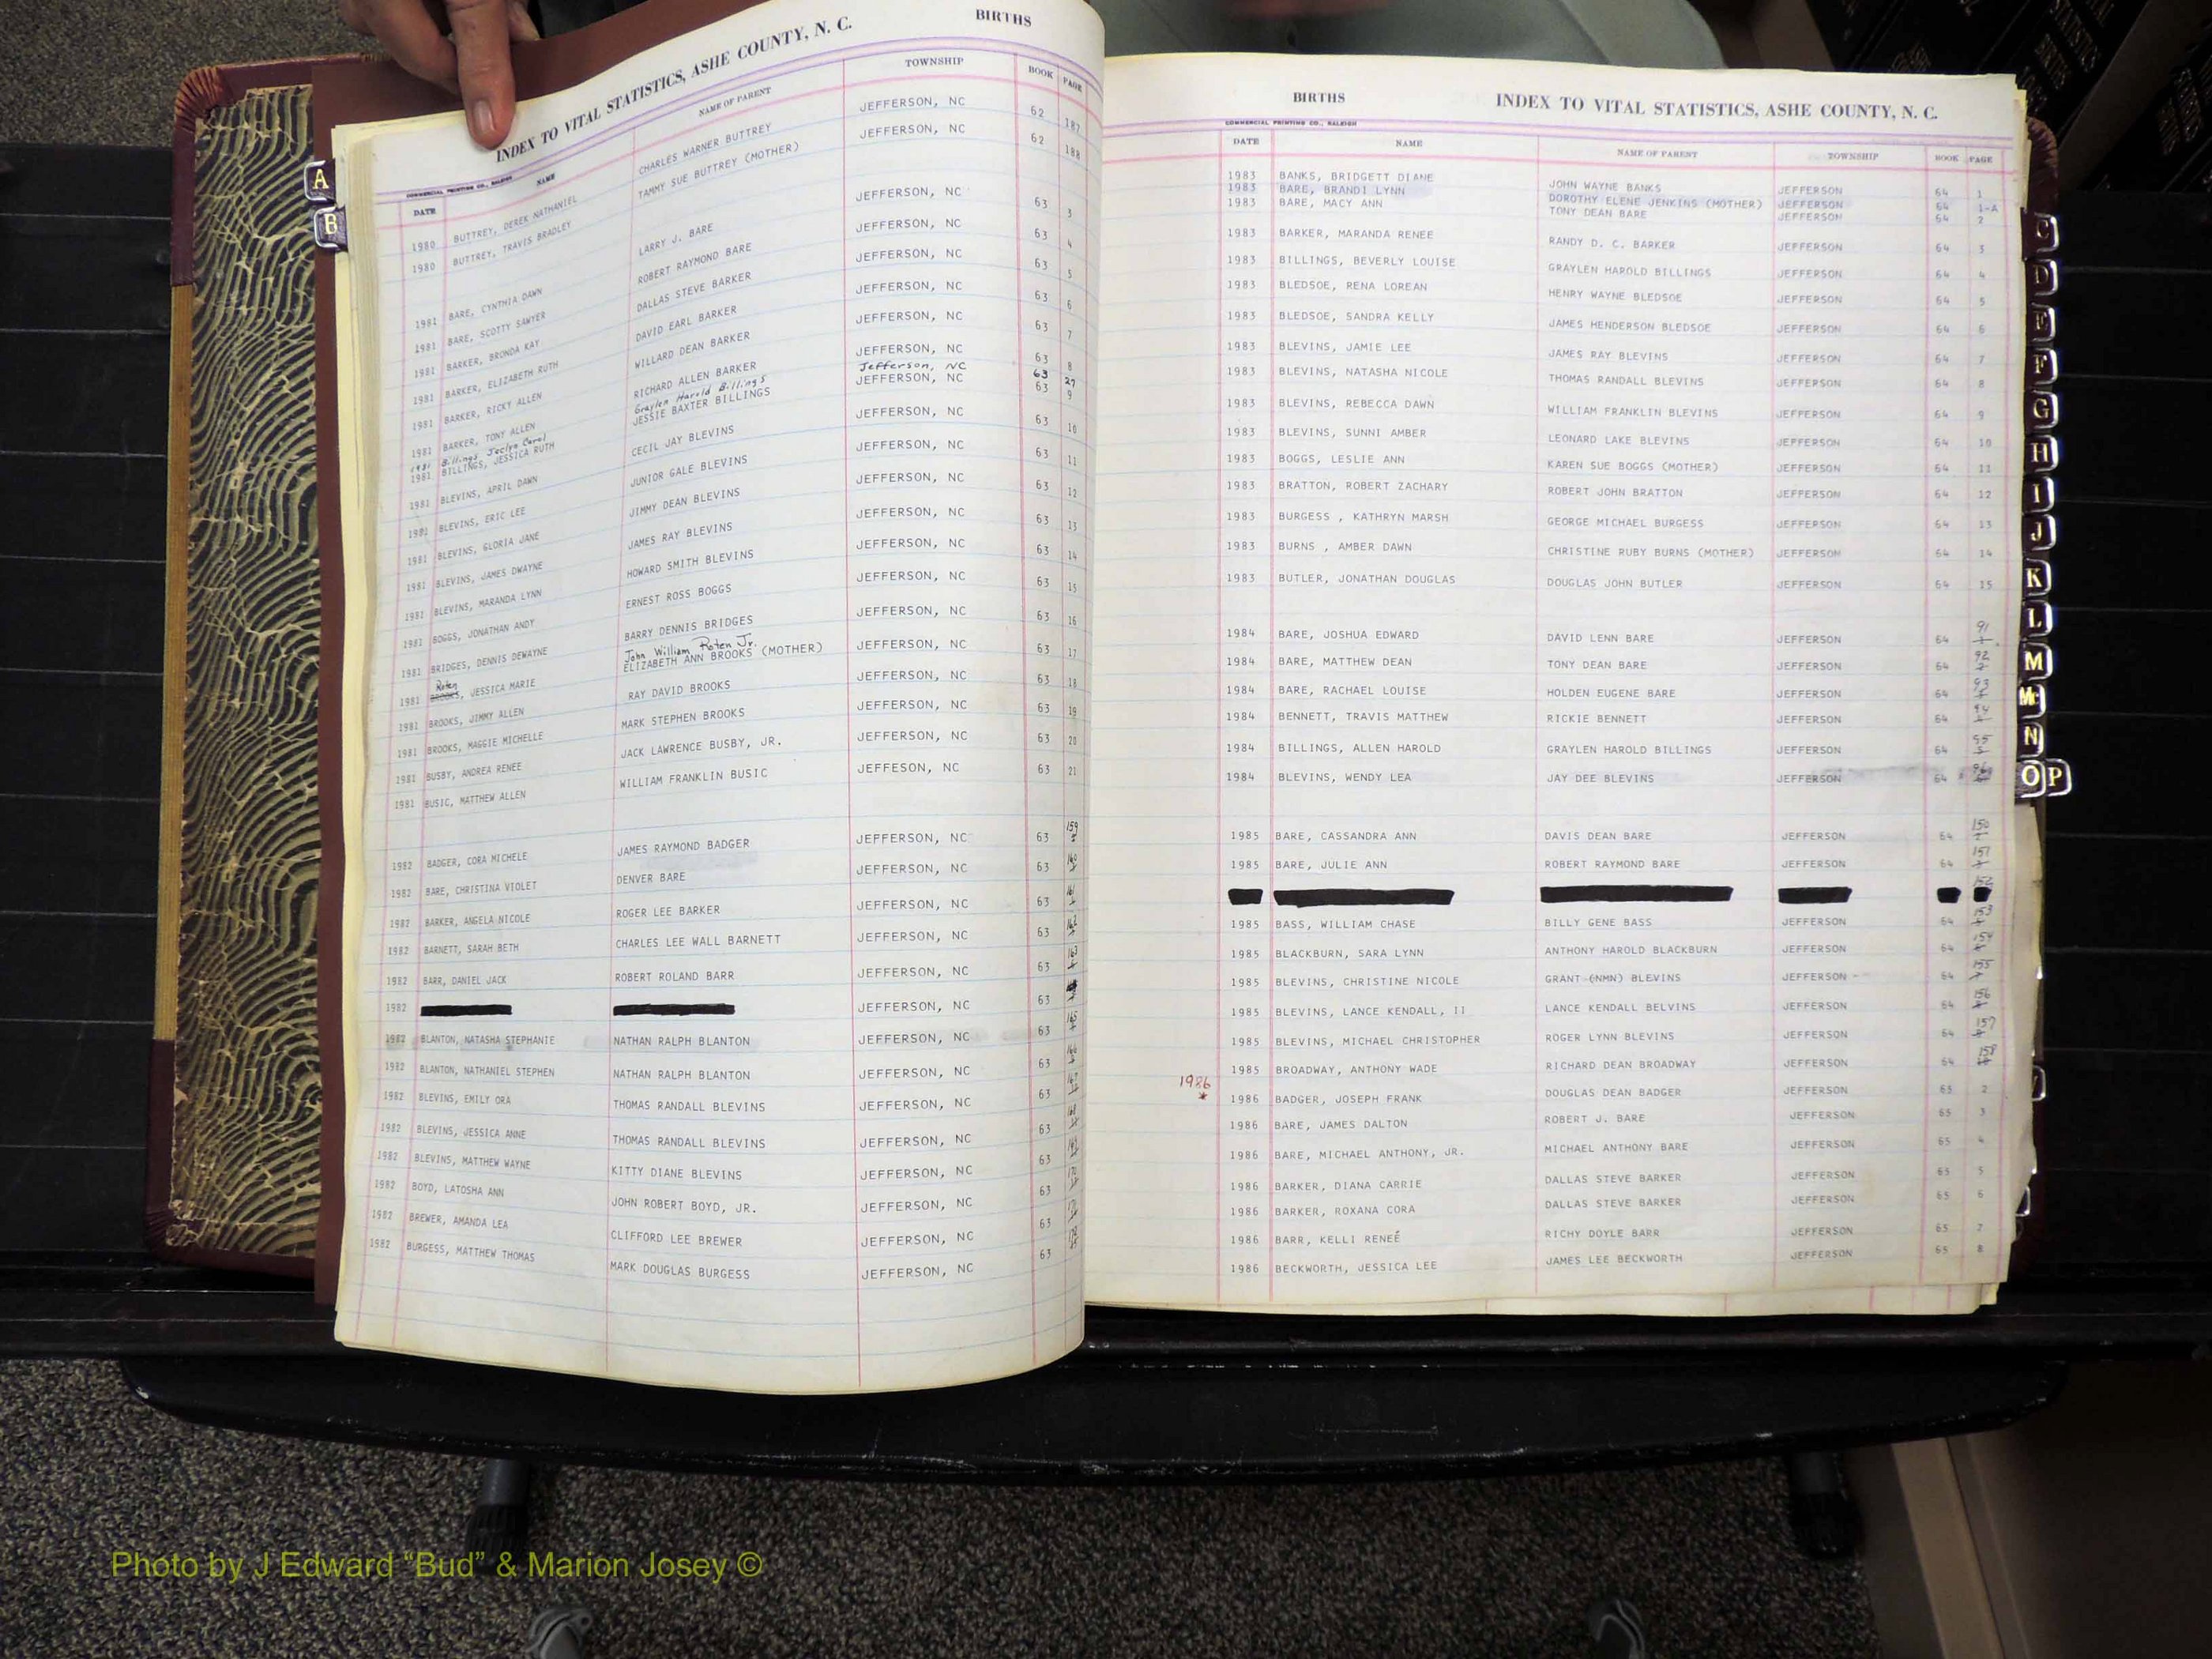 BIRTHS
INDEX TO VITAL STATISTICS, ASHE COUNTY, N. C.
COMMERCIAL PRINTING CO., RALEIGH
DATE NAME NAME OF PARENT TOWNSHIP BOOK PAGE
1980 BUTTREY, DEREK NATHANIEL CHARLES WARNER BUTTREY JEFFERSON, NC 62 187
1980 BUTTREY, TRAVIS BRADLEY TAMMY SUE BUTTREY (MOTHER) JEFFERSON, NC 62 188
1981 BARE, CYNTHIA DAWN LARRY J. BARE JEFFERSON, NC 63 3
1981 BARE, SCOTTY SAWYER ROBERT RAYMOND BARE JEFFERSON, NC 63 4
1981 BARKER, BRONDA KAY DALLAS STEVE BARKER JEFFERSON, NC 63 5
1981 BARKER, ELIZABETH RUTH DAVID EARL BARKER JEFFERSON, NC 63 6
1981 BARKER, RICKY ALLEN WILLARD DEAN BARKER JEFFERSON, NC 63 7
1981 BARKER, TONY ALLEN RICHARD ALLEN BARKER JEFFERSON, NC 63 8
1981 Billings Jaclyn Carol Graylen Harold Billings Jefferson, NC 63 27
1981 BILLINGS, JESSICA RUTH JESSIE BAXTER BILLINGS JEFFERSON, NC 63 9
1981 BLEVINS, APRIL DAWN CECIL JAY BLEVINS JEFFERSON, NC 63 10
1981 BLEVINS, ERIC LEE JUNIOR GALE BLEVINS JEFFERSON, NC 63 11
1981 BLEVINS, GLORIA JANE JIMMY DEAN BLEVINS JEFFERSON, NC 63 12
1981 BLEVINS, JAMES DWAYNE JAMES RAY BLEVINS JEFFERSON, NC 63 13
1981 BLEVINS, MARANDA LYNN HOWARD SMITH BLEVINS JEFFERSON, NC 63 14
1981 BOGGS, JONATHAN ANDY ERNEST ROSS BOGGS JEFFERSON, NC 63 15
1981 BRIDGES, DENNIS DEWAYNE BARRY DENNIS BRIDGES JEFFERSON, NC 63 16
Roten John William Roten Jr.
1981 BROOKS, JESSICA MARIE ELIZABETH ANN BROOKS (MOTHER) JEFFERSON, NC 63 17
1981 BROOKS, JIMMY ALLEN RAY DAVID BROOKS JEFFERSON, NC 63 18
1981 BROOKS, MAGGIE MICHELLE MARK STEPHEN BROOKS JEFFERSON, NC 63 19
1981 BUSBY, ANDREA RENEE JACK LAWRENCE BUSBY, JR. JEFFERSON, NC 63 20
1981 BUSIC, MATTHEW ALLEN WILLIAM FRANKLIN BUSIC JEFFESON, NC 63 21
1982 BADGER, CORA MICHELE JAMES RAYMOND BADGER JEFFERSON, NC 63 159
1982 BARE, CHRISTINA VIOLET DENVER BARE JEFFERSON, NC 63 160
1982 BARKER, ANGELA NICOLE ROGER LEE BARKER JEFFERSON, NC 63 161
1982 BARNETT, SARAH BETH CHARLES LEE WALL BARNETT JEFFERSON, NC 63 162
1982 BARR, DANIEL JACK ROBERT ROLAND BARR JEFFERSON, NC 63 163
1982 JEFFERSON, NC 63
1982 BLANTON, NATASHA STEPHANIE NATHAN RALPH BLANTON JEFFERSON, NC 63 165
1982 BLANTON, NATHANIEL STEPHEN NATHAN RALPH BLANTON JEFFERSON, NC 63 166
1982 BLEVINS, EMILY ORA THOMAS RANDALL BLEVINS JEFFERSON, NC 63 167
1982 BLEVINS, JESSICA ANNE THOMAS RANDALL BLEVINS JEFFERSON, NC 63 168
1982 BLEVINS, MATTHEW WAYNE KITTY DIANE BLEVINS JEFFERSON, NC 63 169
1982 BOYD, LATOSHA ANN JOHN ROBERT BOYD, JR. JEFFERSON, NC 63 170
1982 BREWER, AMANDA LEA CLIFFORD LEE BREWER JEFFERSON, NC 63 171
1982 BURGESS, MATTHEW THOMAS MARK DOUGLAS BURGESS JEFFERSON, NC 63 172
BIRTHS INDEX TO VITAL STATISTICS, ASHE COUNTY, N. C.
COMMERCIAL PRINTING CO., RALEIGH
DATE NAME NAME OF PARENT TOWNSHIP BOOK PAGE
1983 BANKS, BRIDGETT DIANE JOHN WAYNE BANKS JEFFERSON 64 1
1983 BARE, BRANDI LYNN DOROTHY ELENE JENKINS (MOTHER) JEFFERSON 64 1-A
1983 BARE, MACY ANN TONY DEAN BARE JEFFERSON 64 2
1983 BARKER, MARANDA RENEE RANDY D. C. BARKER JEFFERSON 64 3
1983 BILLINGS, BEVERLY LOUISE GRAYLEN HAROLD BILLINGS JEFFERSON 64 4
1983 BLEDSOE, RENA LOREAN HENRY WAYNE BLEDSOE JEFFERSON 64 5
1983 BLEDSOE, SANDRA KELLY JAMES HENDERSON BLEDSOE JEFFERSON 64 6
1983 BLEVINS, JAMIE LEE JAMES RAY BLEVINS JEFFERSON 64 7
1983 BLEVINS, NATASHA NICOLE THOMAS RANDALL BLEVINS JEFFERSON 64 8
1983 BLEVINS, REBECCA DAWN WILLIAM FRANKLIN BLEVINS JEFFERSON 64 9
1983 BLEVINS, SUNNI AMBER LEONARD LAKE BLEVINS JEFFERSON 64 10
1983 BOGGS, LESLIE ANN KAREN SUE BOGGS (MOTHER) JEFFERSON 64 11
1983 BRATTON, ROBERT ZACHARY ROBERT JOHN BRATTON JEFFERSON 64 12
1983 BURGESS , KATHRYN MARSH GEORGE MICHAEL BURGESS JEFFERSON 64 13
1983 BURNS , AMBER DAWN CHRISTINE RUBY BURNS (MOTHER) JEFFERSON 64 14
1983 BUTLER, JONATHAN DOUGLAS DOUGLAS JOHN BUTLER JEFFERSON 64 15
1984 BARE, JOSHUA EDWARD DAVID LENN BARE JEFFERSON 64 91
1984 BARE, MATTHEW DEAN TONY DEAN BARE JEFFERSON 64 92
1984 BARE, RACHAEL LOUISE HOLDEN EUGENE BARE JEFFERSON 64 93
1984 BENNETT, TRAVIS MATTHEW RICKIE BENNETT JEFFERSON 64 94
1984 BILLINGS, ALLEN HAROLD GRAYLEN HAROLD BILLINGS JEFFERSON 64 95
1984 BLEVINS, WENDY LEA JAY DEE BLEVINS JEFFERSON 64 96
1985 BARE, CASSANDRA ANN DAVIS DEAN BARE JEFFERSON 64 150
1985 BARE, JULIE ANN ROBERT RAYMOND BARE JEFFERSON 64 151
152
1985 BASS, WILLIAM CHASE BILLY GENE BASS JEFFERSON 64 153
1985 BLACKBURN, SARA LYNN ANTHONY HAROLD BLACKBURN JEFFERSON 64 154
1985 BLEVINS, CHRISTINE NICOLE GRANT (NMN) BLEVINS JEFFERSON 64 155
1985 BLEVINS, LANCE KENDALL, II LANCE KENDALL BELVINS JEFFERSON 64 156
1985 BLEVINS, MICHAEL CHRISTOPHER ROGER LYNN BLEVINS JEFFERSON 64 157
1985 BROADWAY, ANTHONY WADE RICHARD DEAN BROADWAY JEFFERSON 64 158
1986 *
1986 BADGER, JOSEPH FRANK DOUGLAS DEAN BADGER JEFFERSON 65 2
1986 BARE, JAMES DALTON ROBERT J. BARE JEFFERSON 65 3
1986 BARE, MICHAEL ANTHONY, JR. MICHAEL ANTHONY BARE JEFFERSON 65 4
1986 BARKER, DIANA CARRIE DALLAS STEVE BARKER JEFFERSON 65 5
1986 BARKER, ROXANA CORA DALLAS STEVE BARKER JEFFERSON 65 6
1986 BARR, KELLI RENEÉ RICHY DOYLE BARR JEFFERSON 65 7
1986 BECKWORTH, JESSICA LEE JAMES LEE BECKWORTH JEFFERSON 65 8
A
B
C
D
E
F
G
H
I
J
K
L
M
Mc
N
O P
Photo by J Edward “Bud” & Marion Josey ©